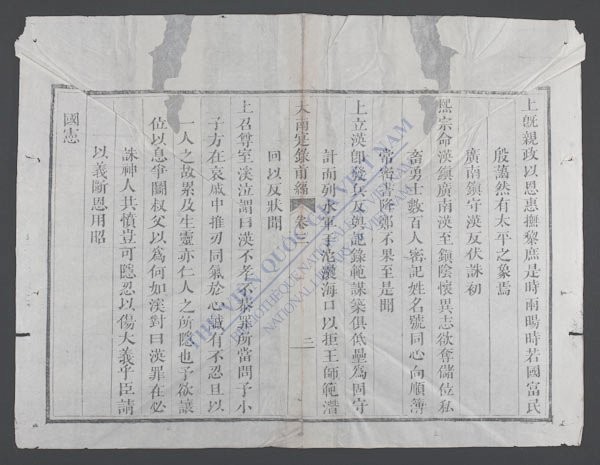 上既親政以恩惠撫黎庶是時雨暘時若國富民
殷藹然有太平之象焉
廣南鎮守渶反伏誅初
熙宗命渶鎮廣南渶至鎮陰懷異志欲奪儲位私
畜勇士數百人密記姓名號同心向順簿
常密書降鄭不果至是聞
上立渶即發兵反與記錄範謀築俱低壘為固守
計而列水軍于沱灢海口以拒王師範潛
大南寔錄前編 卷三 二
回以反狀聞
上召尊室溪泣謂曰渶不孝不恭罪所當問予小
子方在哀戚中推刃同氣於心誠有不忍且以
一人之故累及生靈亦仁人之所隱也予欲讓
位以息爭鬭叔父以為何如溪對曰渶罪在必
誅神人共憤豈可隱忍以傷大義乎臣請
以義斷恩用昭
國憲
THƯ VIỆN QUỐC GIA VIỆT NAM
BIBLIOTHÈQUE NATIONALE DU VIETNAM
NATIONAL LIBRARY OF VIETNAM